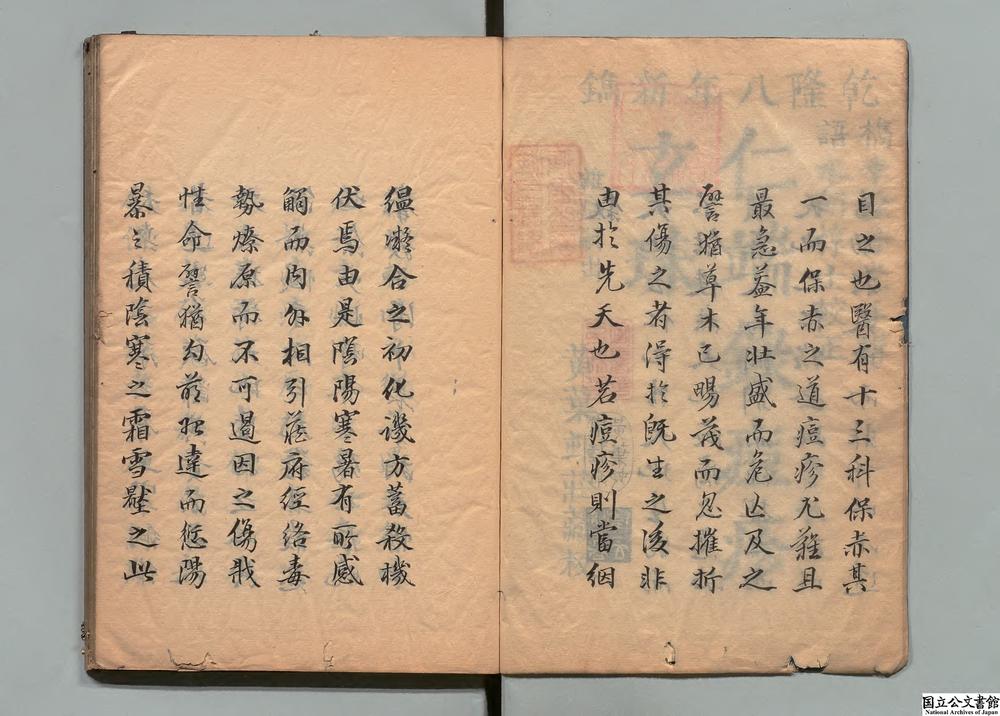 目之也醫有十三科保赤其
一而保赤之道痘疹尤難且
最急蓋年壯盛而危亡及之
譬猶草木已暢茂而忽摧折
其傷之者得於既生之後非
由於先天也若痘疹則當絪
縕凝合之初化譏方蓄殺機
伏焉由是陰陽寒暑有所感
觸而内外相引臟府經絡毒
勢燎原而不可遏因之傷戕
性命譬猶勾萌 達而愆陽
暴之積陰寒之霜雪 之此
乾隆八年新鐫
仁端錄痘疹
国立公文書館
National Archives of Japan